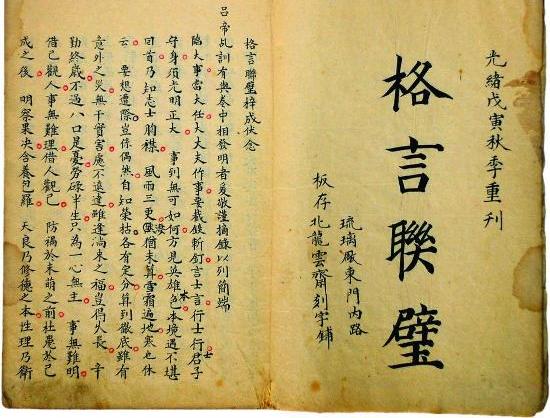 光緒戊寅秋季重刊
格言聯璧
琉璃厰東門內路
板存北龍雲齋刻字鋪
格言聯璧梓成伏念
呂帝乩訓有與卷中相發明者爰敬謹摘錄以列簡端
臨大事當大任大丈夫作事要截鉄斬釘言士言行士行君子
守身須光明正大 事到無可如何方見英雄色本境遇不堪
回首乃知志士胸襟 風雨三更僧未算雪霜遍地寒也休
云 要想遭際豈係偶然自知榮枯各有定分算到徹底雖有
意外之災無干實害慮不遠達雖逢来之福豈久長 辛
勤終歲不過八口是憂勞碌半生只為一心無主 事無難明
借己觀人事無難理借人觀己 防禍於未萌之前杜患於已
成之後 明察果决含養包羅 天良乃修德之本性理乃衛